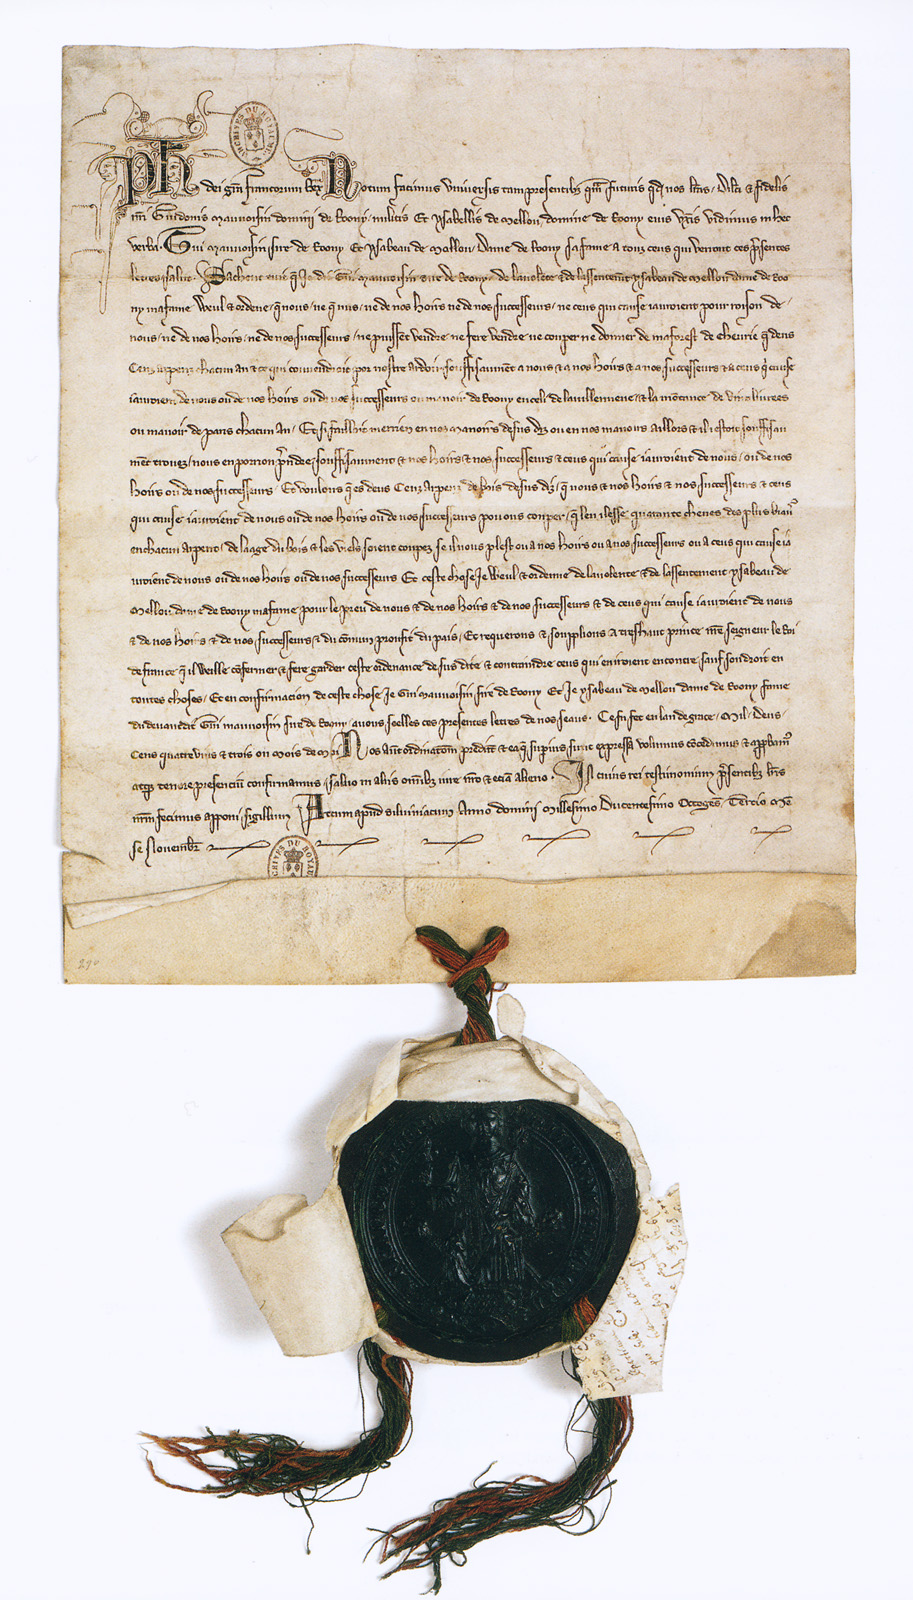 Ph dei gra francorum Rex Notum facimus Universis tam presentibz qm futuris qd nos lras Dilci & fidelis
nri Guidonis mauvoisin domini de Roony militis Et ysabellis de Mellou domine de Roony eius Uxis Vidimus in hec
verba. Gui mauvoisin sire de Roony Et ysabeau de Mellou Dame de Roony sa fame a touz ceus qui verront ces psentes
letres salut. Sachent tuit q Je di Gui mauvoisin sire de Roony. de la volente & de lassentement ysabeau de Mellou dame de Roo
ny ma fame Weul & ordene q nous ne q nus ne de nos hoirs ne de nos successeurs ne ceus qui cause iauroient pour roison de
nous ne de nos hoirs ne de nos successeurs ne puisset vendre ne fere vendre ne couper ne donner de ma forest de chevrie q deus
Cenz arpenz chacun an & ce qui couvendroit por nostre ardoir souffisaumet a nous & a nos hoirs & a nos successeurs & a ceus q cause
iauroient de nous ou de nos hoirs ou de nos successeurs ou manoir de Roony en celi de la villeneuve & la montance de livrees
ou manoir de paris chacun an. Et si failloit merrien en noz manoirs desus diz ou en nos manoirs aillors & il i estoit souffisau
met trouvez nous en porrion prendre souffisaument & nos hoirs & nos successeurs & ceus qui cause iauroient de nous ou de nos
hoirs ou de nos successeurs. Et voulons q es deus Cenz arpenz de bois desus diz q nous & nos hoirs & nos successeurs & ceus
qui cause iauroient de nous ou de nos hoirs ou de nos successeurs porrons couper q len i lesse quarante chenes des plus biau
en chacun arpent de laage du bois & les viels soient coupez se il nous plest ou a nos hoirs ou a nos successeurs ou a ceus qui cause ia
uroient de nous ou de nos hoirs ou de nos successeurs Et ceste chose Je Weul & ordenne de la volente & de lassentement ysabeau de
Mellou dame de Roony ma fame pour le preu de nous & de nos hoirs & de nos successeurs & de ceus qui cause iauroient de nous
& de nos hoirs & de nos successeurs & du comun proufit du pais. Et requerons & soupplions a treshaut prince nre seigneur le Roi
de france q il Weille cofermer & fere garder ceste ordenance desus dite & contraindre ceus qui en iroient encontre sauf son droit en
toutes choses. Et en confirmacion de ceste chose Je Gui mauvoisin sire de Roony Et Je ysabeau de Mellou dame de Roony fame
du devant dit Gui mauvoisin sire de Roony avons seelles ces presentes lettres de nos seaus. Ce fu fet en lan de grace. Mil. Deus.
Cens quatre vins & trois ou mois de Nos aut ordinatom predict & ea q supius sunt expressa volumus cocedimus & appbam
atqz tenore presencium confirmamus salvo in aliis omibz iure nro & etia alieno. In cuius rei testimonium psentibz lris
nrm fecimus apponi sigillum Actum apud silviniacum Anno domini Millesimo Ducentesimo Octoges Tercio Me
se Novembr
ARCHIVES DU ROYAUME
ARCHIVES DU ROYAUME
290